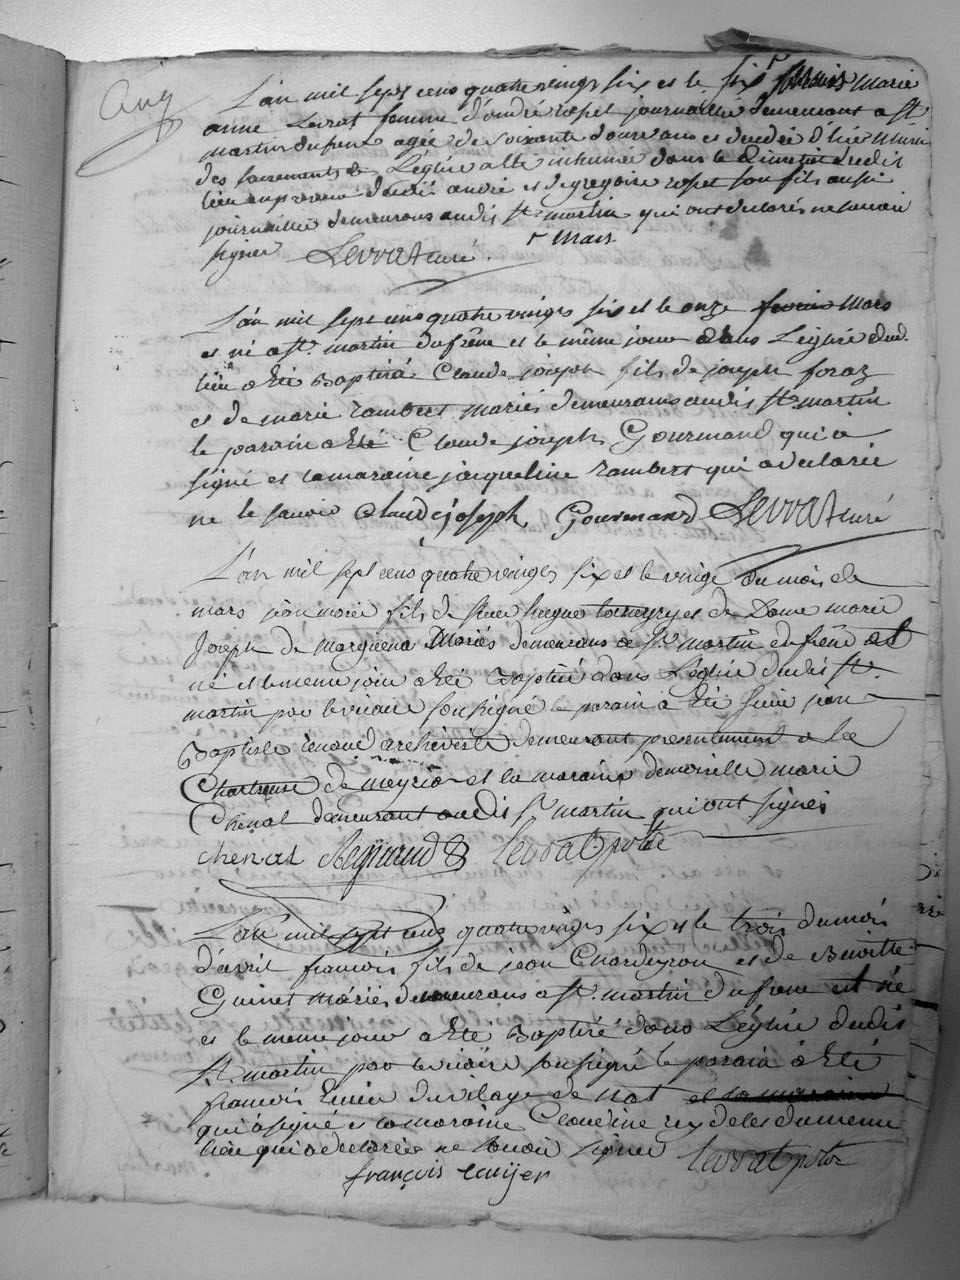 L'an mil sept cens quatre vingt six et le six fevrier Marie
anne Levrat femme d'andré rosset journaillié demeurant a St
martin du frene agée de soixante douze ans et decedée munie
des sacrements de L'églize a été inhumée dans le Cimetiere dudit
lieu en presence dudit andré et de gregoire rosset son fils aussi
journaillié demeurans audit St martin qui ont declarés ne savoir
signer Levrat curé.
r mars
L'an mil sept cens quatre vingt six et le onze fevrier Mars
est né a St. martin du frêne et le même jour dans L'églize dud.
lieu a été Baptizé Claude joseph fils de joseph foraz
et de marie rambert mariés demeurans audit St. martin
le parrain a été Claude joseph Gourmand qui a
signé et la maraine jacqueline rambert qui a declarée
ne le savoir Claude joseph Gourmand Levrat curé
L'an mil sept cens quatre vingt six et le vingt du mois de
mars jean marie fils de Sieur hugue et de Dame marie
Joseph de Marguena Mariés demeurans a St martin du frêne est
né et le meme jour a été Baptizé dans L'églize dudit St.
martin par le vicaire soussigné le parain à été Sieur jean
Baptiste renaud archiviste demeurant presentement a la
Chartreuse de meyria et la maraine demoiselle marie
Chenal demeurant audit St martin qui ont signés
chenal Levrat
L'an mil sept cens quatre vingt six et le trois du mois
d'avril francois fils de jean Chardeyron et de Benoitte
Guinet mariés demeurans a St. martin du frene est né
et le meme jour a été Baptizé dans L'églize dudit
St. martin par le vicaire soussigné le parain à été
francois Ecuier du vilage de nat et la maraine
qui a signé et la maraine Claudine rey de les du meme
lieu qui a declarée ne savoir signer Levrat
françois ecuijer